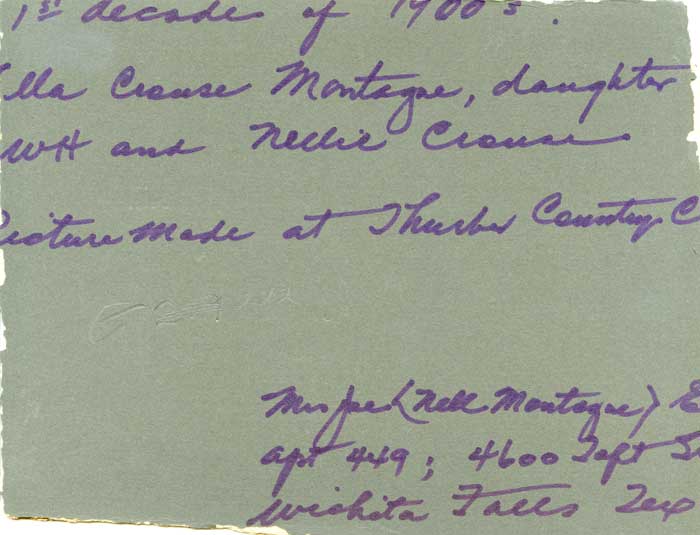 1st decade of 1900's.
Ella Crouse Montague, daughter
WH and Nellie Crouse
Picture Made at Thurber Country C
Mrs Joe (Nell Montague) E
apt 449; 4600 Taft
Wichita Falls Tex